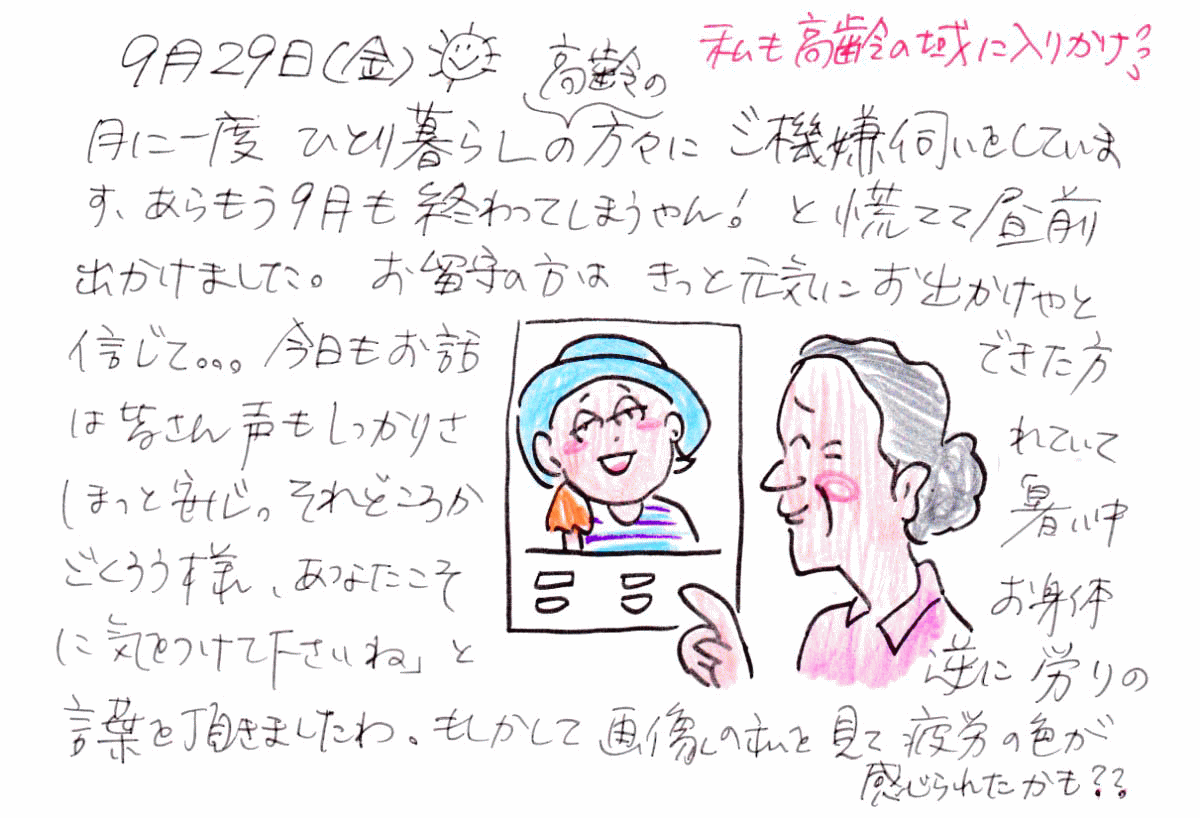 9月29日(金)
私も高齢の域に入りかけ??
高齢の
月に一度 ひとり暮らしの方々に ご機嫌伺いをしていま
す、あらもう9月も終わってしまうやん! と慌てて昼前
出かけました。 お留守の方は きっと元気にお出かけやと
信じて。。。今日もお話 できた方
は皆さん声もしっかりさ れていて
ほっと安心。それどころか 暑い中
ごくろう様、あなたこそ お身体
に気をつけて下さいね」と 逆に労りの
言葉を頂きましたわ。もしかして画像の私を見て疲労の色が
感じられたかも??